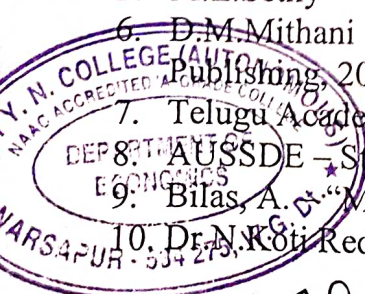 6. D.M.Mithani
Publishing, 20
7. Telugu Acade
8. AUSSDE – S
9. Bilas, A. "M
10. Dr.N.Koti Red
Y. N. COLLEGE (AUTONOMOUS)
NAAC ACCREDITED 'A' GRADE COLLEGE
DEPARTMENT OF
ECONOMICS
NARSAPUR - 534 275, W.G. Dt.